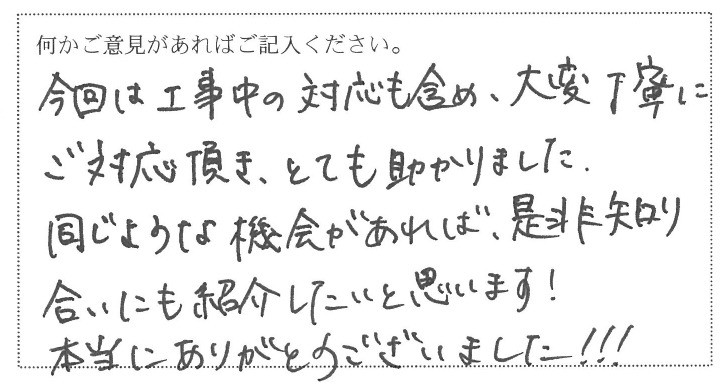 何かご意見があればご記入ください。
今回は工事中の対応も含め、大変丁寧に
ご対応頂き、とても助かりました.
同じような機会があれば、是非知り
合いにも紹介したいと思います!
本当にありがとのございました!!!